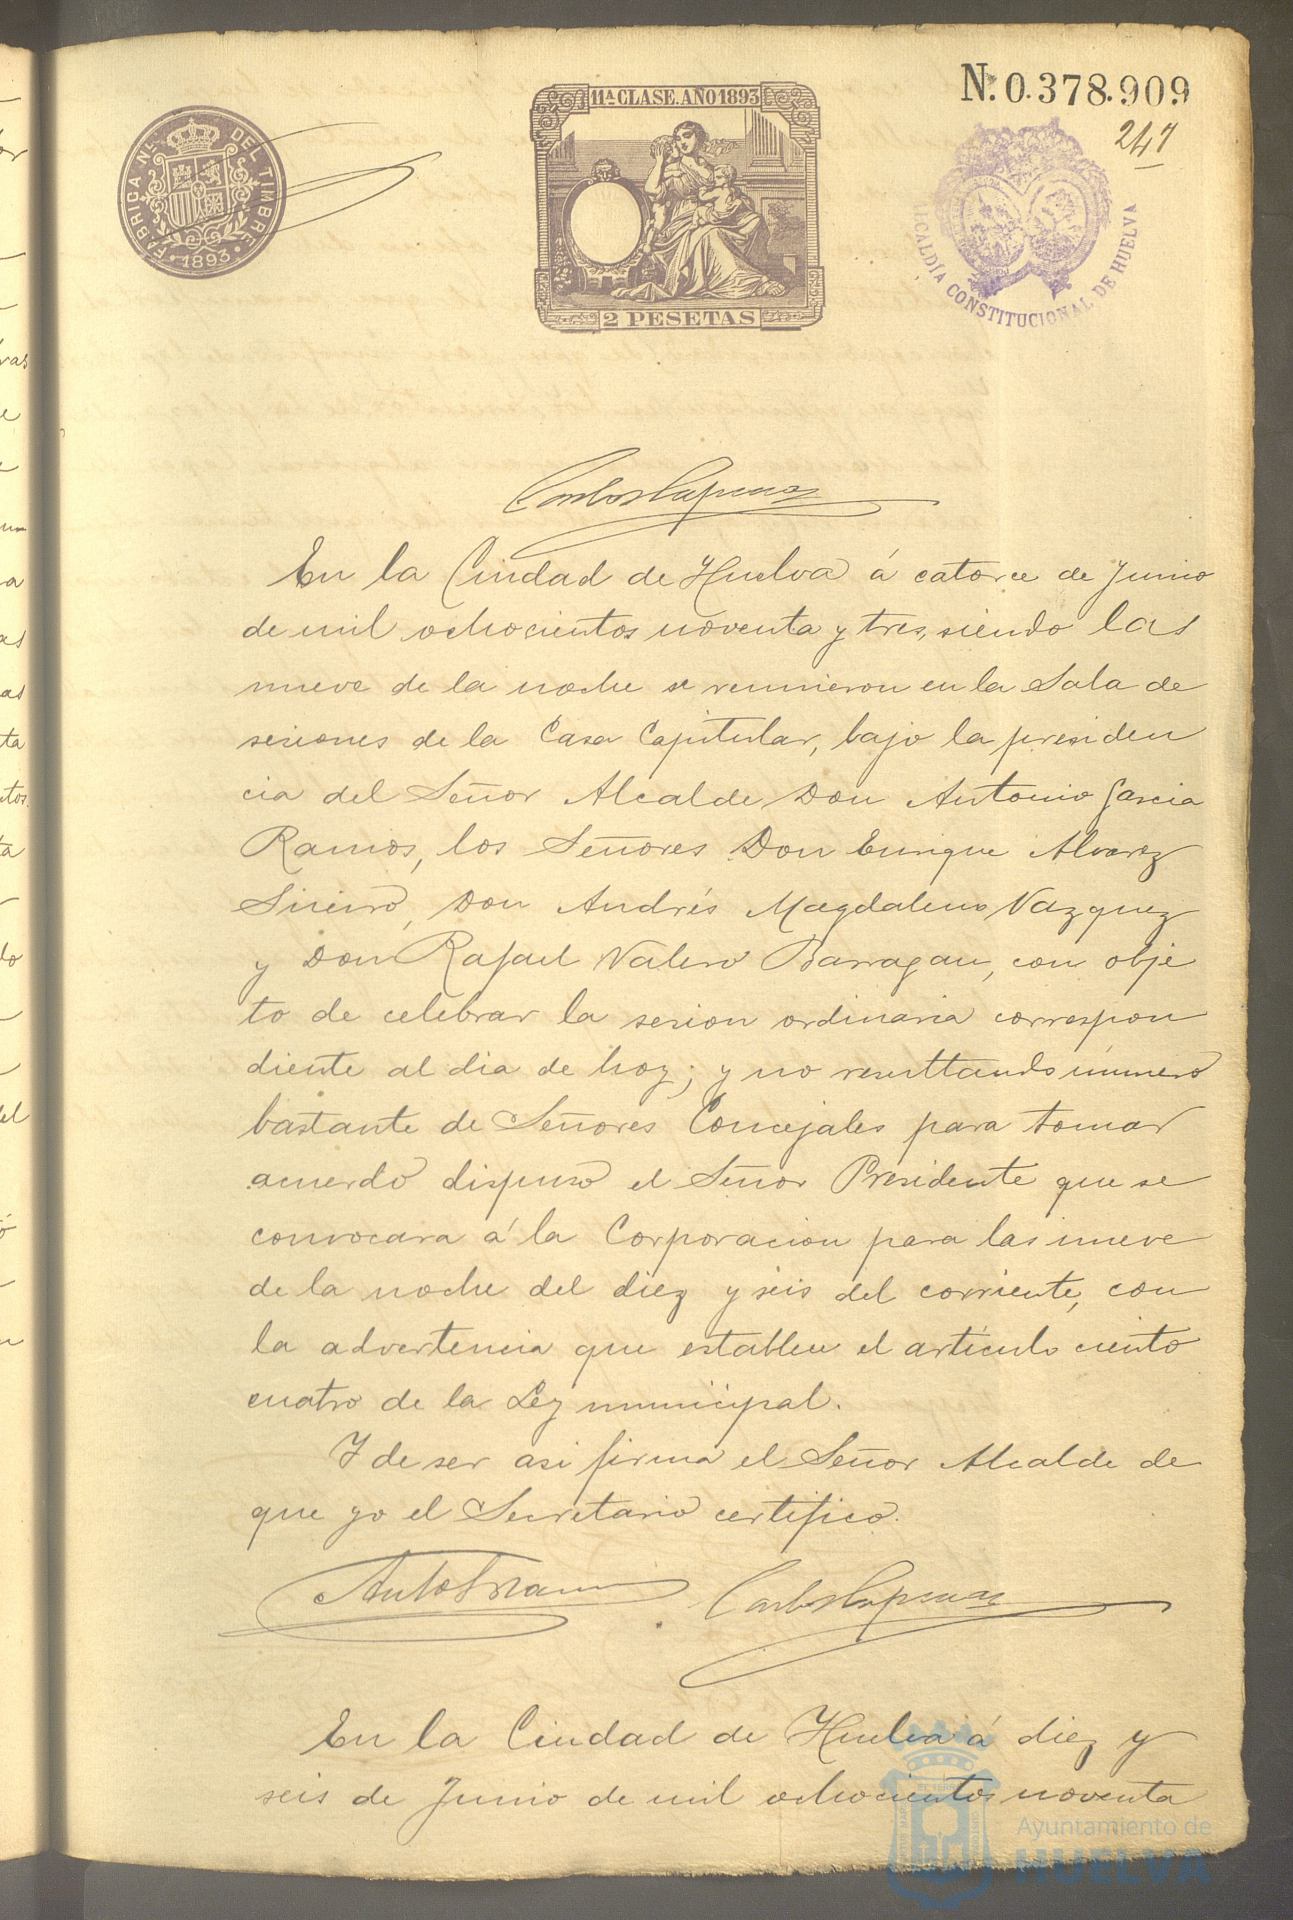 N. 0.378.909
247
11ª CLASE. AÑO 1893
FÁBRICA NL. DEL TIMBRE
1893
2 PESETAS
ALCALDÍA CONSTITUCIONAL DE HUELVA
En la Ciudad de Huelva á catorce de Junio
de mil ochocientos noventa y tres, siendo las
nueve de la noche se reunieron en la Sala de
sesiones de la Casa Capitular, bajo la presiden
cia del Señor Alcalde Don Antonio Garcia
Ramos, los Señores Don Enrique Alvarez
Don Andrés Magdaleno Vazquez
y Don Rafael Valero Barragan, con obje
to de celebrar la sesion ordinaria correspon
diente al dia de hoy; y no resultando número
bastante de Señores Concejales para tomar
acuerdo dispuso el Señor Presidente que se
convocara á la Corporacion para las nueve
de la noche del diez y seis del corriente, con
la advertencia que establece el artículo ciento
cuatro de la Ley municipal.
Y de ser asi firma el Señor Alcalde de
que yo el Secretario certifico.
En la Ciudad de Huelva á diez y
seis de Junio de mil ochocientos noventa
Ayuntamiento de
HUELVA